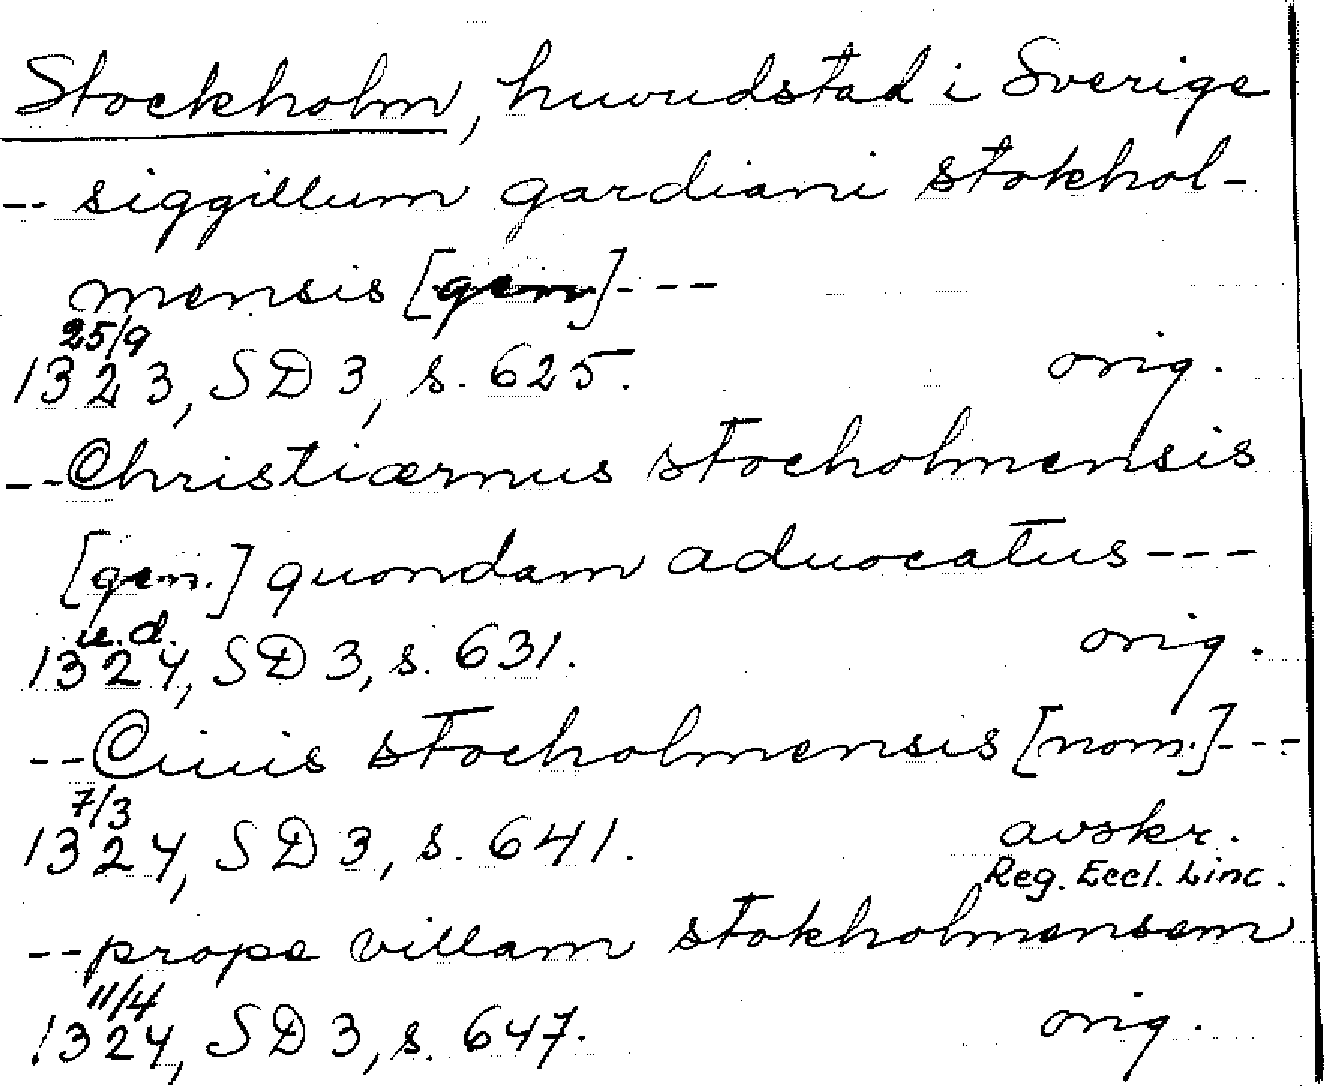 Stockholm, huvudstad i Sverige
-- siggillum gardiani stokhol-
mensis [gen]---
25/9
1323, SD 3, s. 625. orig.
-- Christiærnus stocholmensis
[gen.] quondam aduocatus---
u.d.
1324, SD 3, s. 631. orig.
-- Ciuis stocholmensis [nom.]---
7/3
1324, SD 3, s. 641. avskr.
Reg. Eccl. Linc.
-- prope villam stokholmensem
11/4
1324, SD 3, s. 647. orig.